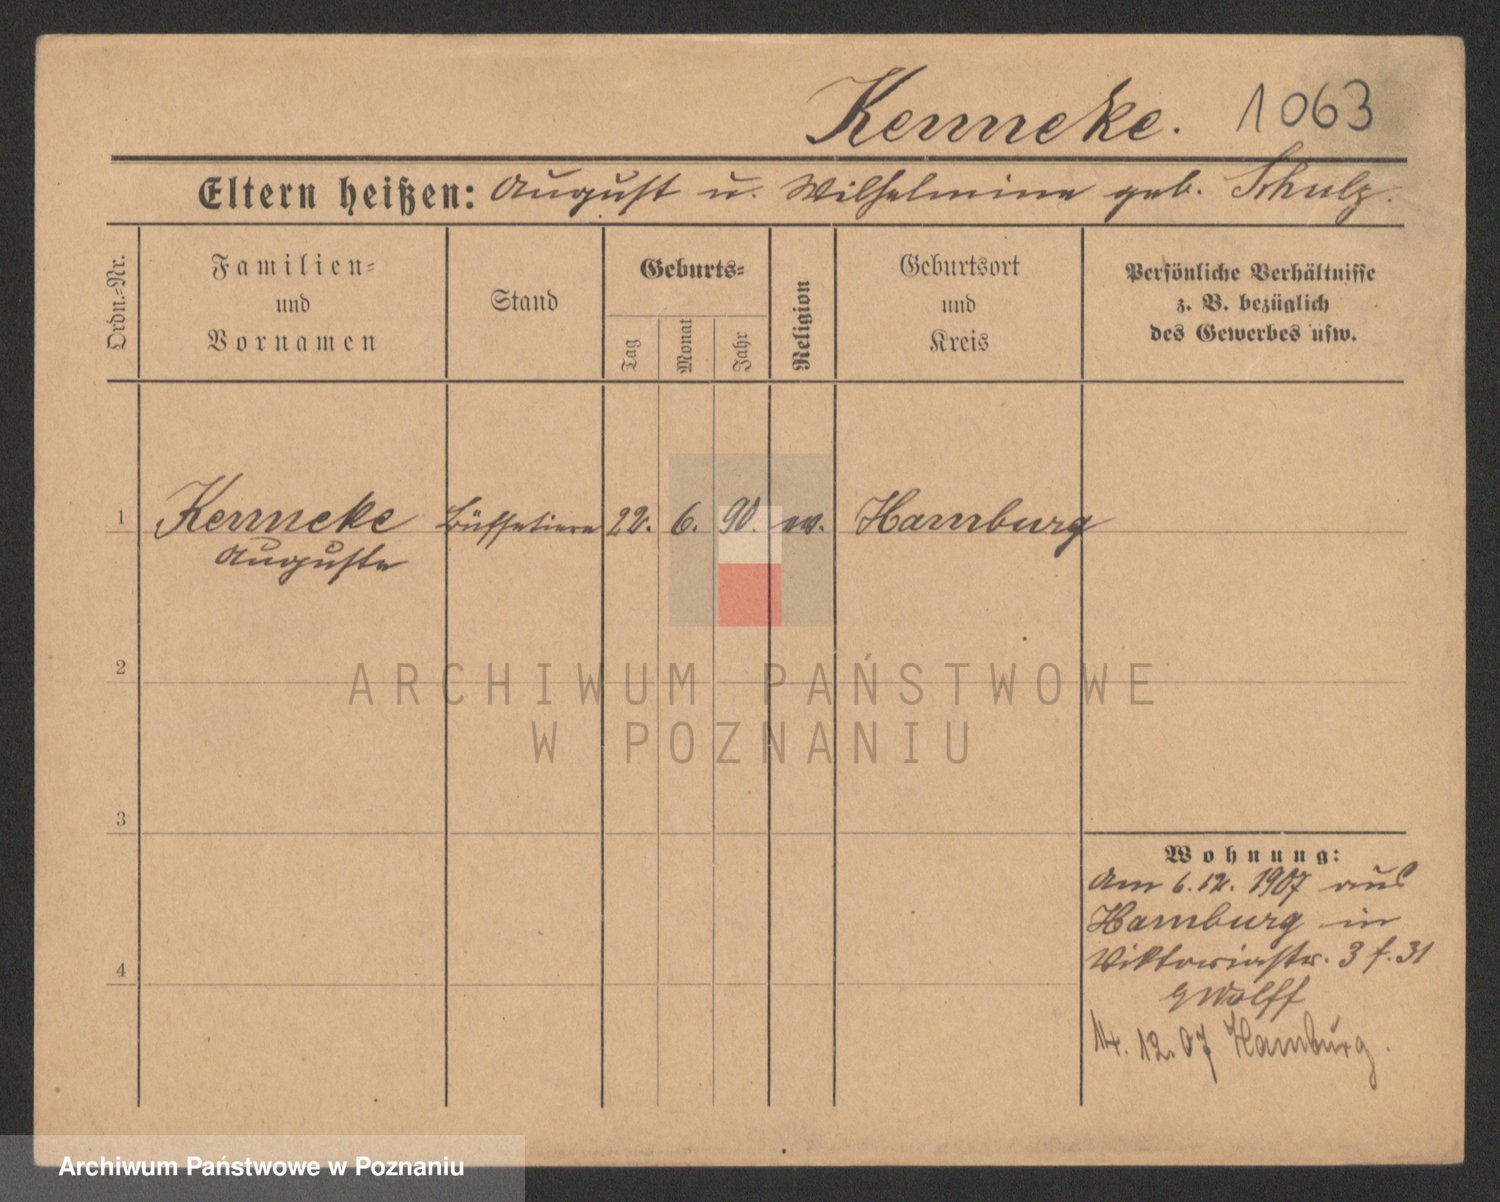 Kenneke. 1063
Eltern heißen: August u. Wilhelmine geb. Schulz.
Ordn.-Nr.
Familien-
und
Vornamen
Stand
Geburts-
Tag
Monat
Jahr
Religion
Geburtsort
und
Kreis
Persönliche Verhältnisse
z. B. bezüglich
des Gewerbes usw.
1 Kenneke Büffetiere 22. 6. 90. ev. Hamburg
Auguste
2
ARCHIWUM PAŃSTWOWE
W POZNANIU
3
Wohnung:
Am 6.12. 1907 aus
Hamburg in
Viktoriastr. 3 f. 31
Wolff
4
14. 12. 07 Hamburg.
Archiwum Państwowe w Poznaniu